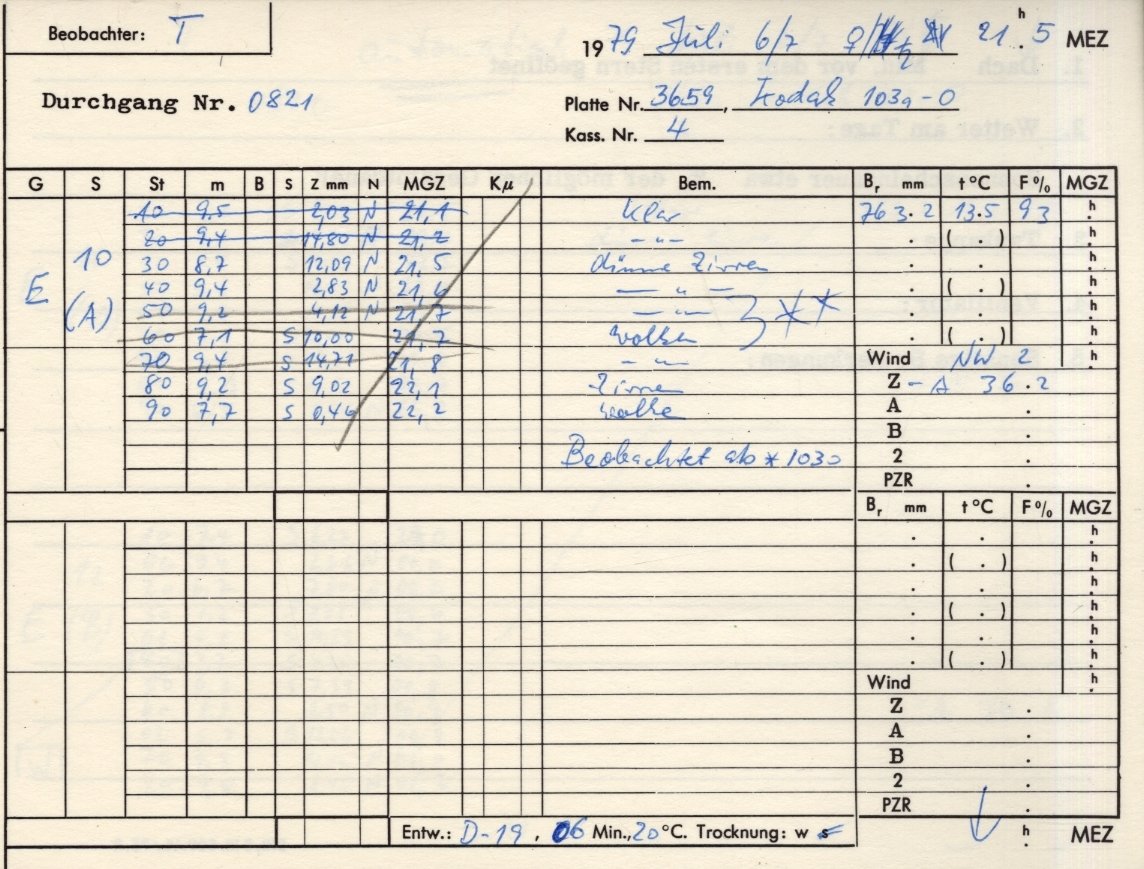 Beobachter: T
1979 Juli 6/7 21h.5 MEZ
Durchgang Nr. 0821
Platte Nr. 3659, Kodak 103a-O
Kass. Nr. 4
G S St m B S Z mm N MGZ Kμ Bem. Br mm t °C F % MGZ
10 9,5 2,03 N 21,1 klar 763.2 13.5 93 h
20 9,4 14,80 N 21,2 -"- ( . ) h
E 10 (A)
30 8,7 12,09 N 21,5 dünne Zirren . . h
40 9,4 2,83 N 21,6 -"- ( . ) h
50 9,2 4,12 N 21,7 -"- . . h
60 7,1 S 10,00 21,7 Wolken ( . ) h
70 9,4 S 14,71 21,8 -"- Wind NW 2 h
80 9,2 S 9,02 22,1 Zirren Z - A 36.2
90 7,7 S 0,46 22,2 Wolke A .
B .
Beobachtet ab * 1030 2 .
PZR .
Br mm t °C F % MGZ
. . h
. ( . ) h
. . h
. ( . ) h
. . h
. ( . ) h
Wind h
Z .
A .
B .
2 .
PZR .
Entw.: D-19, 06 Min., 20 °C. Trocknung: w s h. MEZ